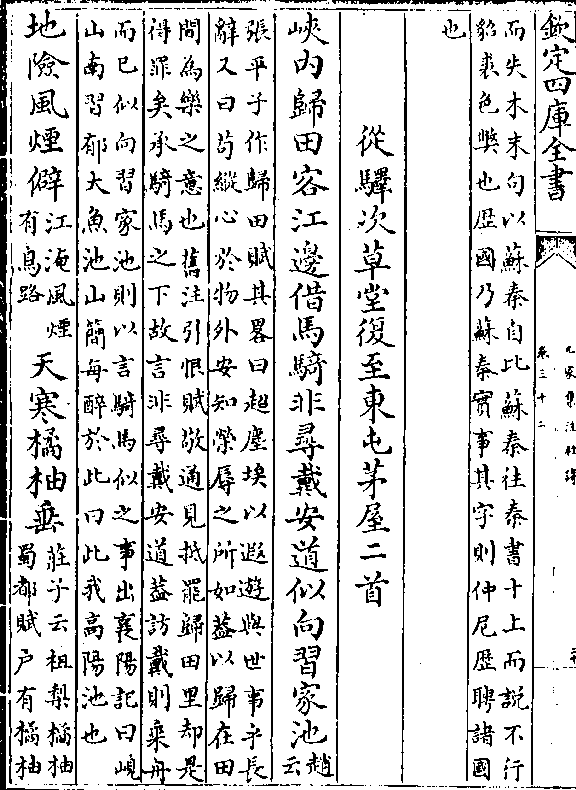 欽定四庫全書
九家集注杜詩
卷三十二
而失木末句以蘇秦自比蘇秦往秦書十上而說不行
貂裘色弊也歴國乃蘇秦實事其字則仲尼歴聘諸國
也
從驛次草堂復至東屯茅屋二首
峽内歸田客江邊借馬騎非尋戴安道似向習家池趙云
張平子作歸田賦其畧曰超塵埃以遐遊與世事乎長
辭又曰苟縱心於物外安知榮辱之所如葢以歸在田
間為樂之意也舊注引恨賦敬通見抵罷歸田里却是
得罪矣承騎馬之下故言非尋戴安道葢訪戴則乘舟
而已似向習家池則以言騎馬似之事出襄陽記曰峴
山南習郁大魚池山簡每醉於此曰此我高陽池也
地險風煙僻江淹風煙有鳥路天寒橘柚垂莊子云柤梨橘柚蜀都賦户有橘柚